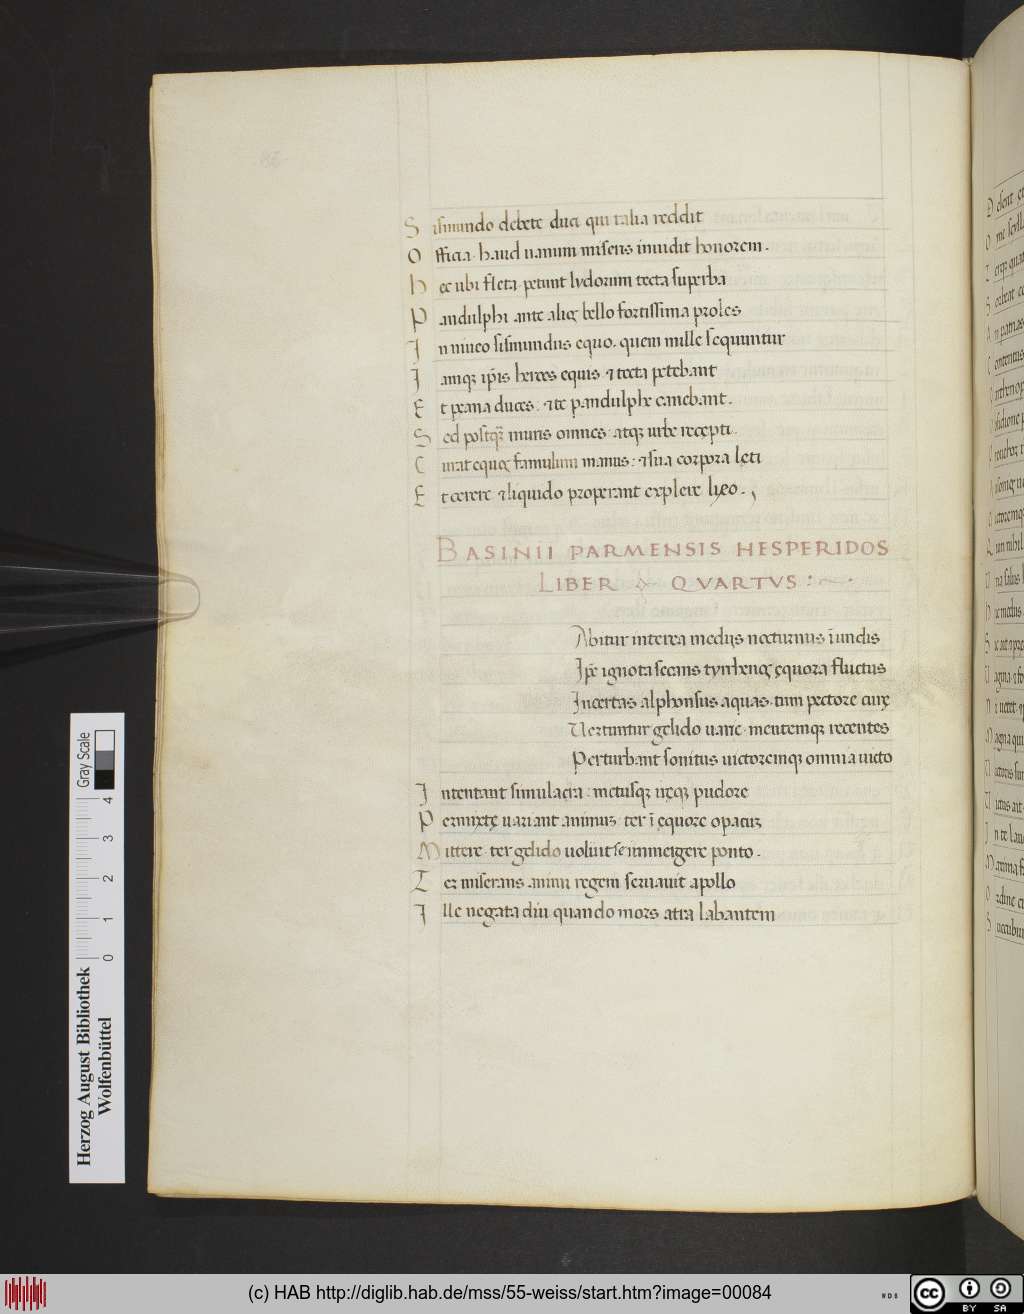 Sismundo debete duci qui talia reddit
Officia. haud uanum miseris inuidit honorem.
hec ubi fleta. petunt lydorum tecta superba
Pandulphi ante alios bello fortissima proles
In niueo sismundus equo. quem mille sequuntur
Iamq; ipsis heroes equis. & tecta petebant
Et peana duces: & te pandulphe canebant.
Sed postq̃ muris omnes: atq; urbe recepti.
Curat equos famulum manus: & sua corpora lęti
Et cerere & liquido properant explere lyeo.
BASINII PARMENSIS HESPERIDOS
LIBER QVARTVS :
Abitur interea medijs nocturnus ĩ undis
Ip̃e ignota secans tyrrhenę ęquora fluctus
Incertas alphonsus aquas. tum pectore curę
Uertuntur gelido uarię. mentemq; recentes
Perturbant sonitus uictoremq; omnia uicto
Intentant simulacra: metusq; nęq; pudore
Permixtę uariant animus. ter ĩ ęquore opatuʒ
Mittere. ter gelido uoluit se immergere ponto.
Ter miserans animi regem seruauit apollo
Ille negata diu quando mors atra labantem
Herzog August Bibliothek
Wolfenbüttel
0 1 2 3 4
Gray Scale
(c) HAB http://diglib.hab.de/mss/55-weiss/start.htm?image=00084
cc BY SA